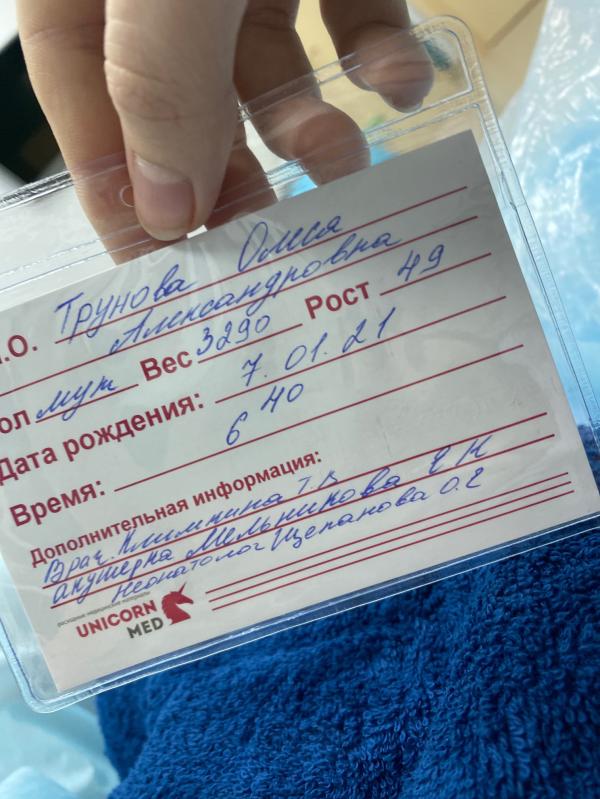 .О. Трунова Олеся
Александровна
ол муж Вес 3290 Рост 49
Дата рождения: 7.01.21
Время: 6 40
Дополнительная информация:
Врач Климкина Т.В
акушерка Мельникова Е Н
неонатолог Щепанова О.Г
расходные медицинские материалы
UNICORN
MED